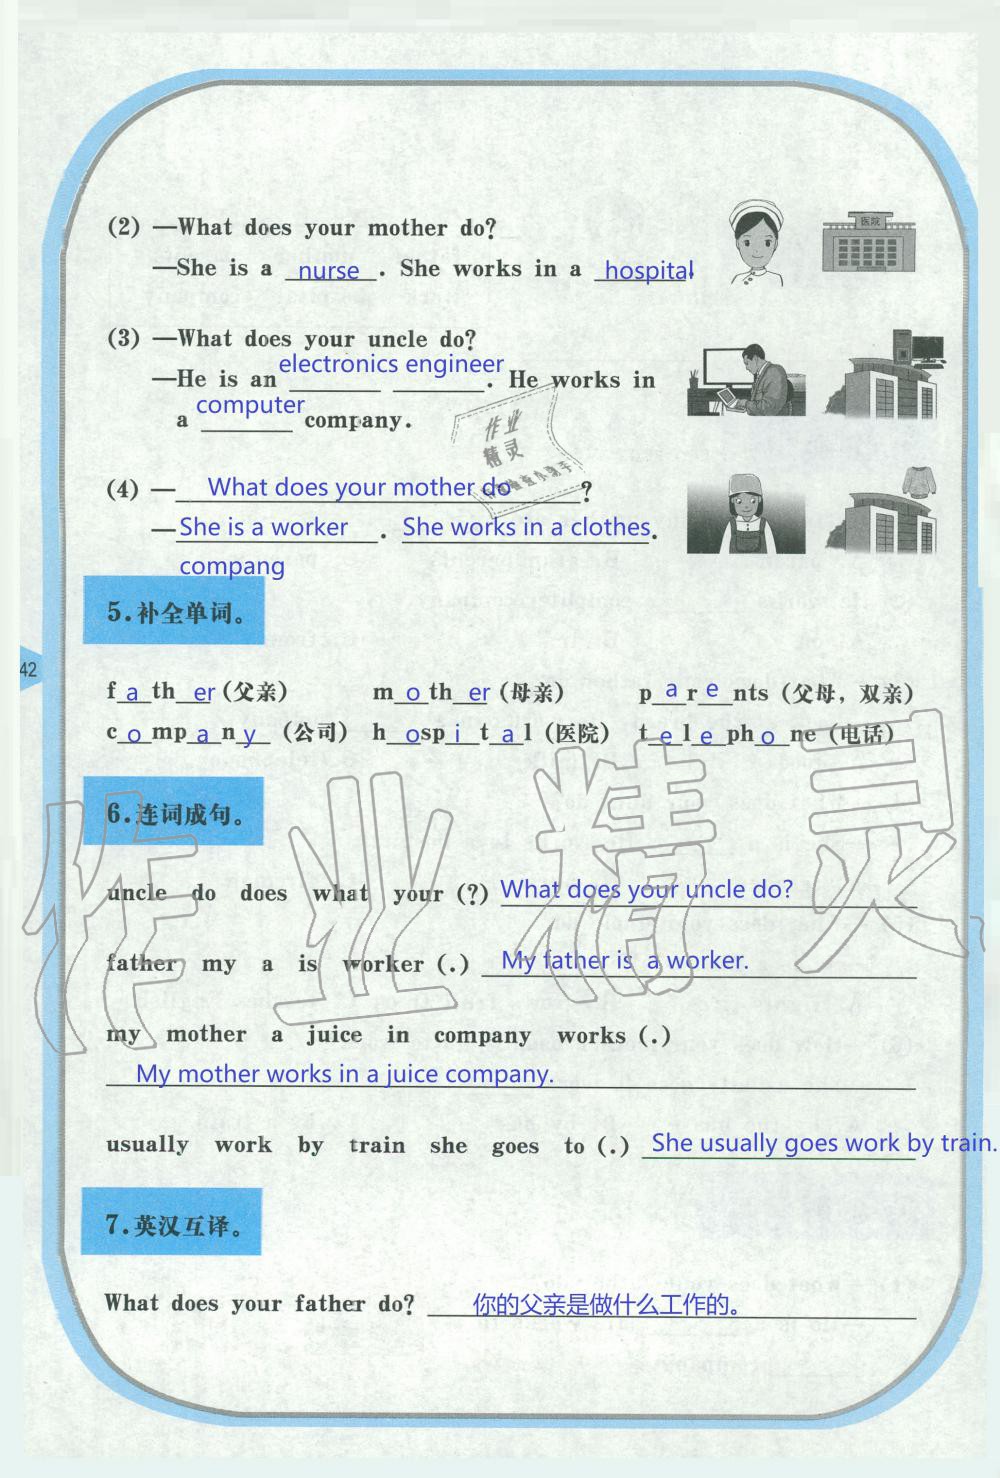 (2) —What does your mother do?
医院
—She is a nurse. She works in a hospital.
(3) —What does your uncle do?
—He is an electronics engineer. He works in
a computer company.
作业
精灵
(4) —What does your mother do?
—She is a worker. She works in a clothes.
compang
5.补全单词。
42
f a th er (父亲) m o th er (母亲) p a r e nts (父母，双亲)
c o mp a n y (公司) h o sp i t a l (医院) t e l e ph o ne (电话)
6.连词成句。
uncle do does what your (?) What does your uncle do?
father my a is worker (.) My father is a worker.
作业精灵
my mother a juice in company works (.)
My mother works in a juice company.
usually work by train she goes to (.) She usually goes work by train.
7.英汉互译。
What does your father do? 你的父亲是做什么工作的。